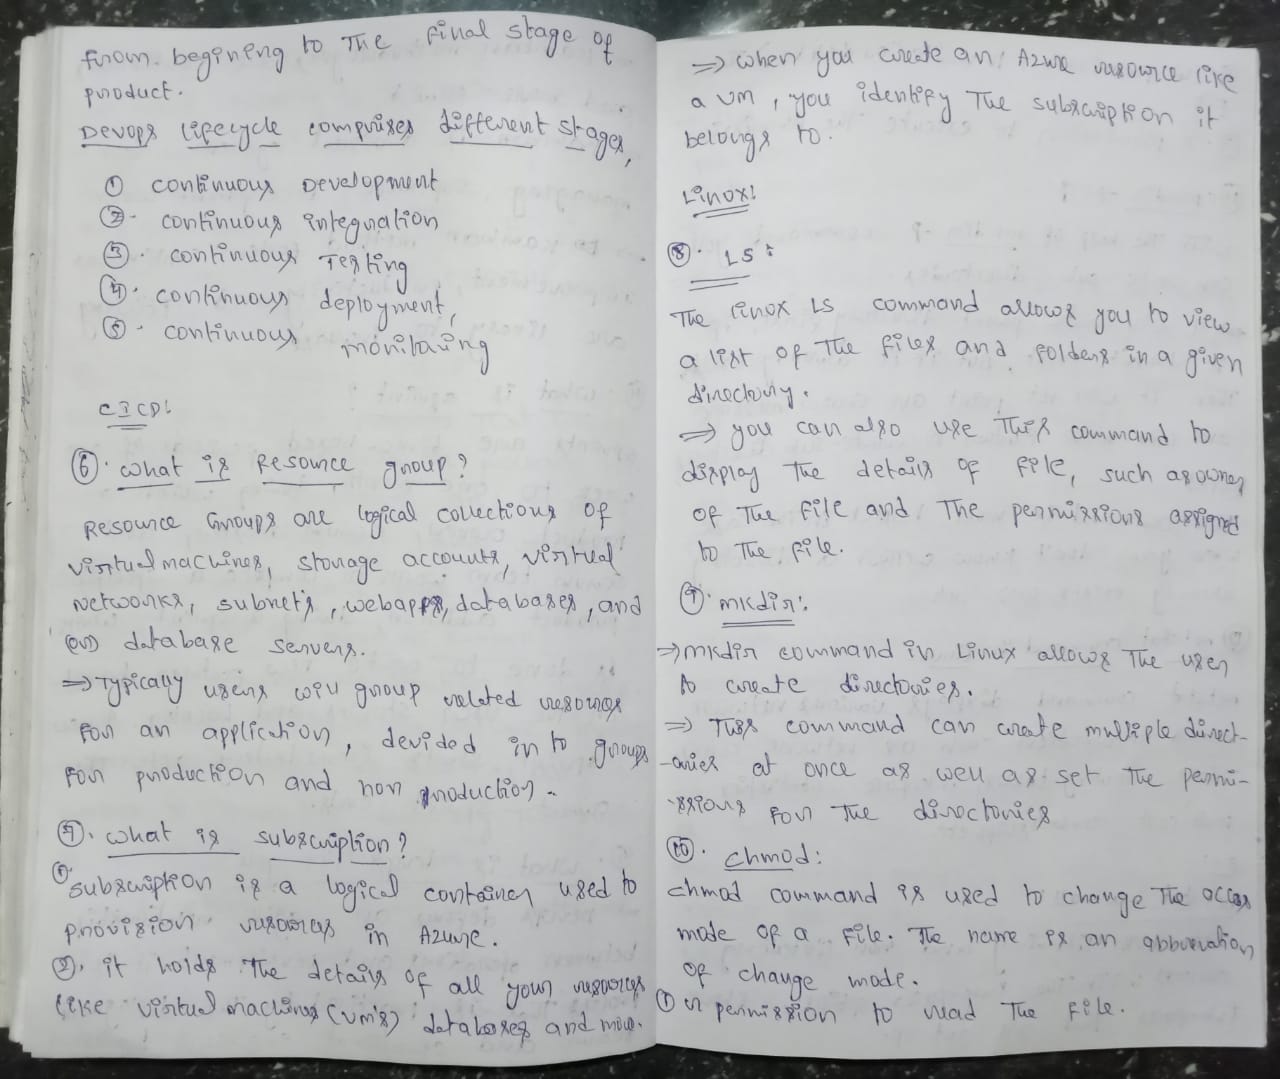 from begining to The final stage of
product.
Devops lifecycle comprises different stages,
① continuous Development
② continuous integration
③ continuous Testing
④ continuous deployment,
⑤ continuous monitoring
CICD:
⑥ what is Resource group?
Resource Groups are logical collections of
virtual machines, storage accounts, virtual
networks, subnets, webapps, databases, and
(or) database servers.
⇒ Typically users will group related resources
for an application, devided in to groups
for production and non production.
⑦. what is subscription?
① subscription is a logical container used to
provision resources in Azure.
②. it holds The details of all your resources
like virtual machines (VM's) databases and more.
⇒ when you create an Azure resource like
a VM, you identify The subscription it
belongs to.
Linox:
⑧. LS:
The linox LS command allows you to view
a list of The files and folders in a given
directory.
⇒ you can also use This command to
display The details of file, such as owner
of The file and The permissions assigned
to The file.
⑨. mkdir:
⇒ mkdir command in Linux allows The user
to create directories.
⇒ This command can create multiple direct-
-ories at once as well as set The permi-
-ssions for The directories
⑩. chmod:
chmod command is used to change The access
mode of a file. The name is an abbrevation
of change mode.
① r permission to read The file.